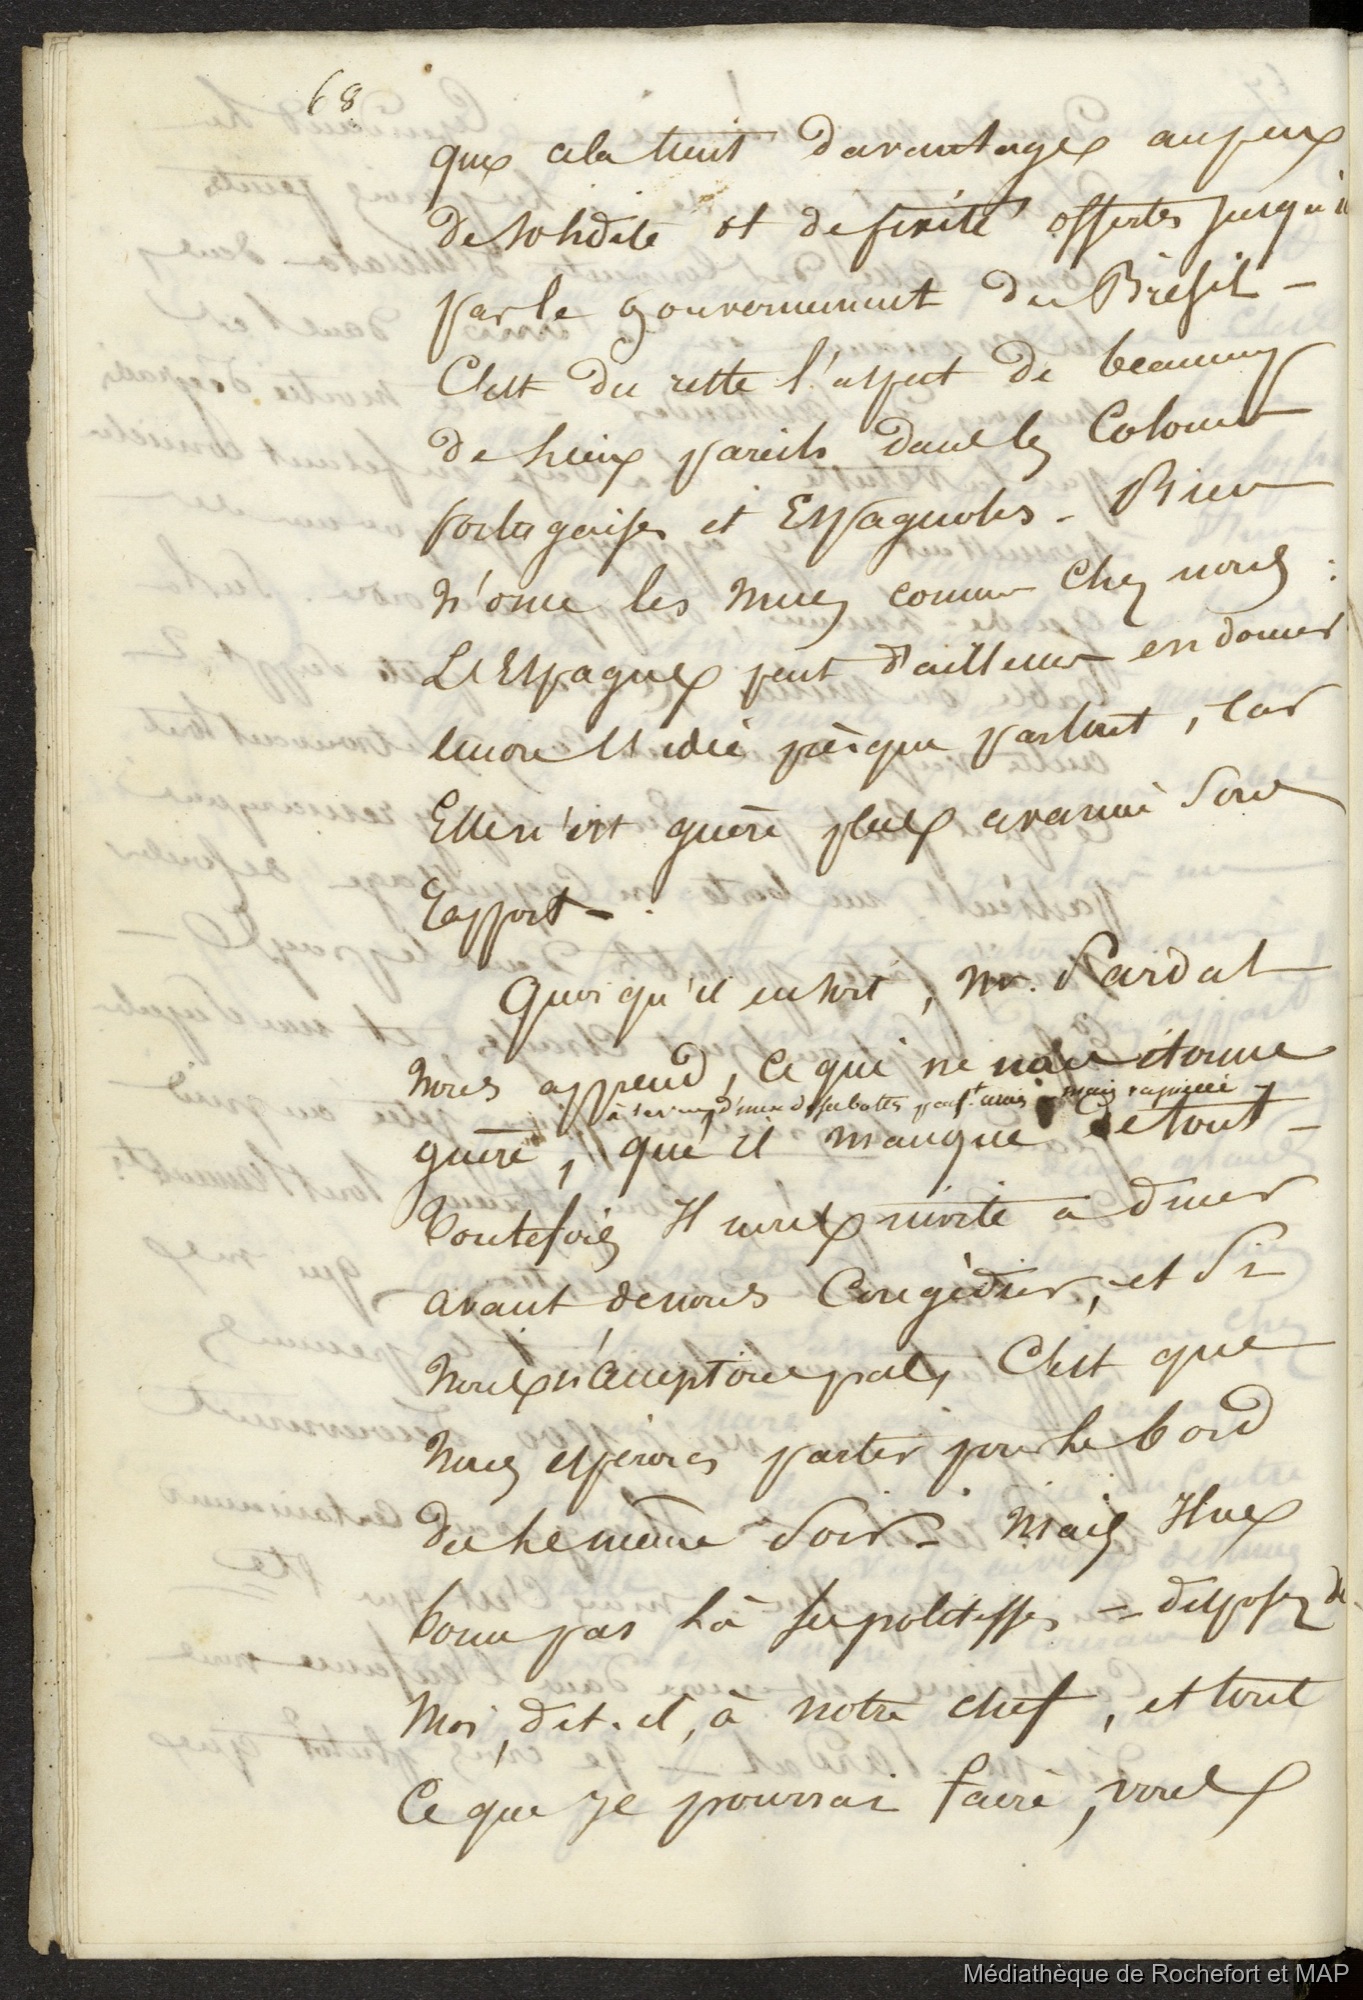 68
que cela tient davantage au peu
de solidité et de fixité offertes jusqu'ici
par le gouvernement du Brésil -
C'est du reste l'aspect de beaucoup
de lieux pareils dans les Colonies
portugaises et Espagnoles - Rien
n'orne les murs comme chez nous :
L'Espagne peut d'ailleurs en donner
encore l'idée presque partout, car
Elle n'est guère plus avancée sous ce
Rapport - .
Quoi qu'il en soit, Mr. Pardal
nous apprend, ce qui ne nous étonne
guère, qu'il manque de tout -
Toutefois Il nous invite à diner
avant de nous Congédier, et Si
nous n'acceptons pas, C'est que
nous espérons partir pour le bord
du le même Soir - Mais Il ne
borne pas là ses politesses - disposez de
Moi, dit-il, à notre chef, et tout
Ce que je pourrai faire, vous
Médiathèque de Rochefort et MAP